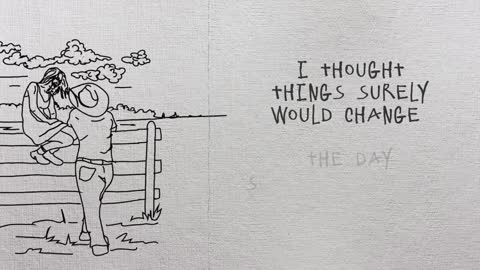 I THOUGHT
THINGS SURELY
WOULD CHANGE
THE DAY
S